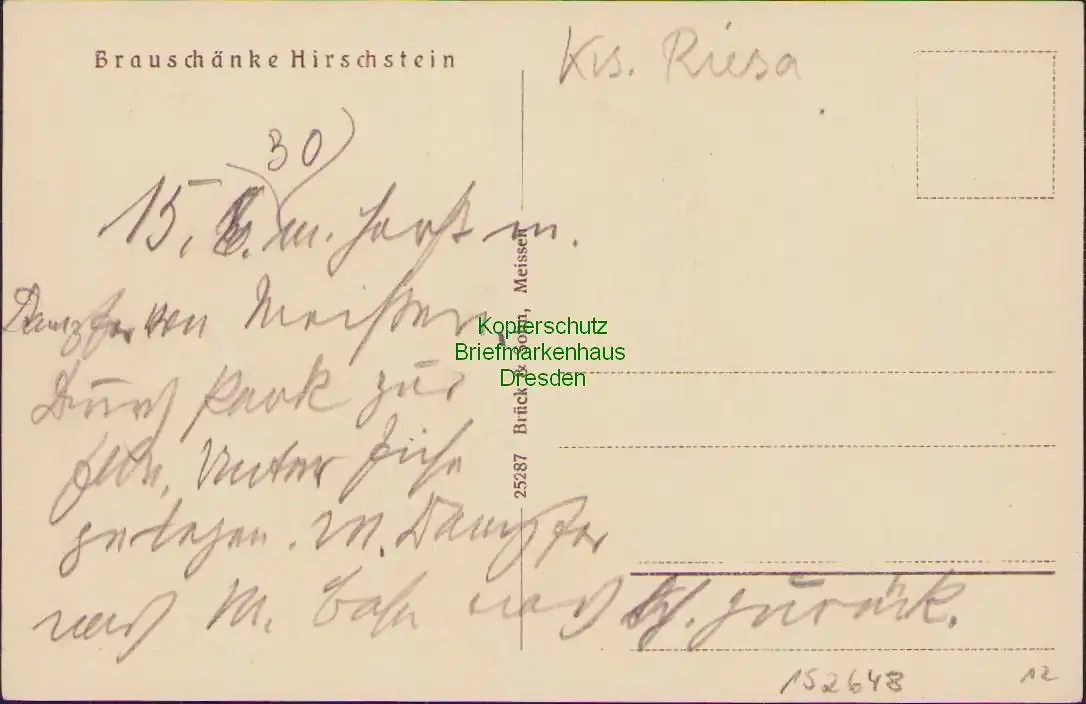 Brauschänke Hirschstein
Krs. Riesa
30
15. 6. m. Horst m.
Dampfer von Meißen,
Durch Park zur
Elbe, Unter Eiche
gelegen. M. Dampfer
nach M. Bahn nach zurück.
25287 Brück & Sohn, Meissen
Kopierschutz
Briefmarkenhaus
Dresden
152648
12